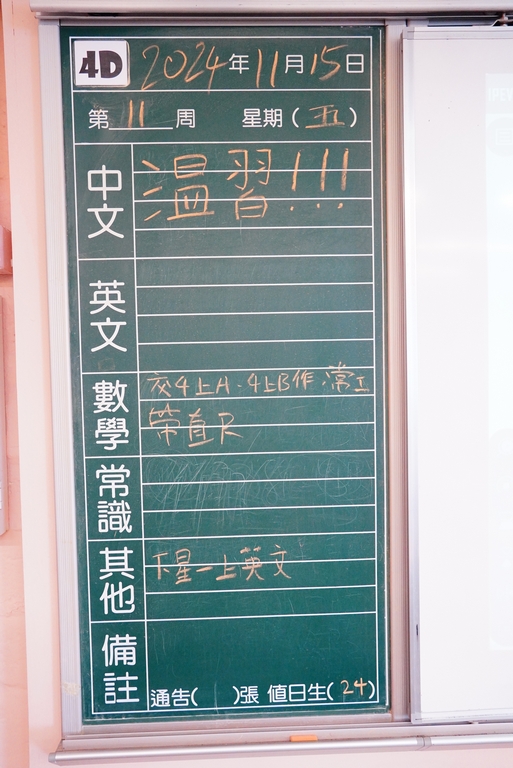 4D 2024年11月15日
第 11 周 星期(五)
中文 溫習!!!
英文
數學 交4上A、4上B作,常工
帶直尺
常識
其他 下星一上英文
備註
通告( )張 值日生(24)